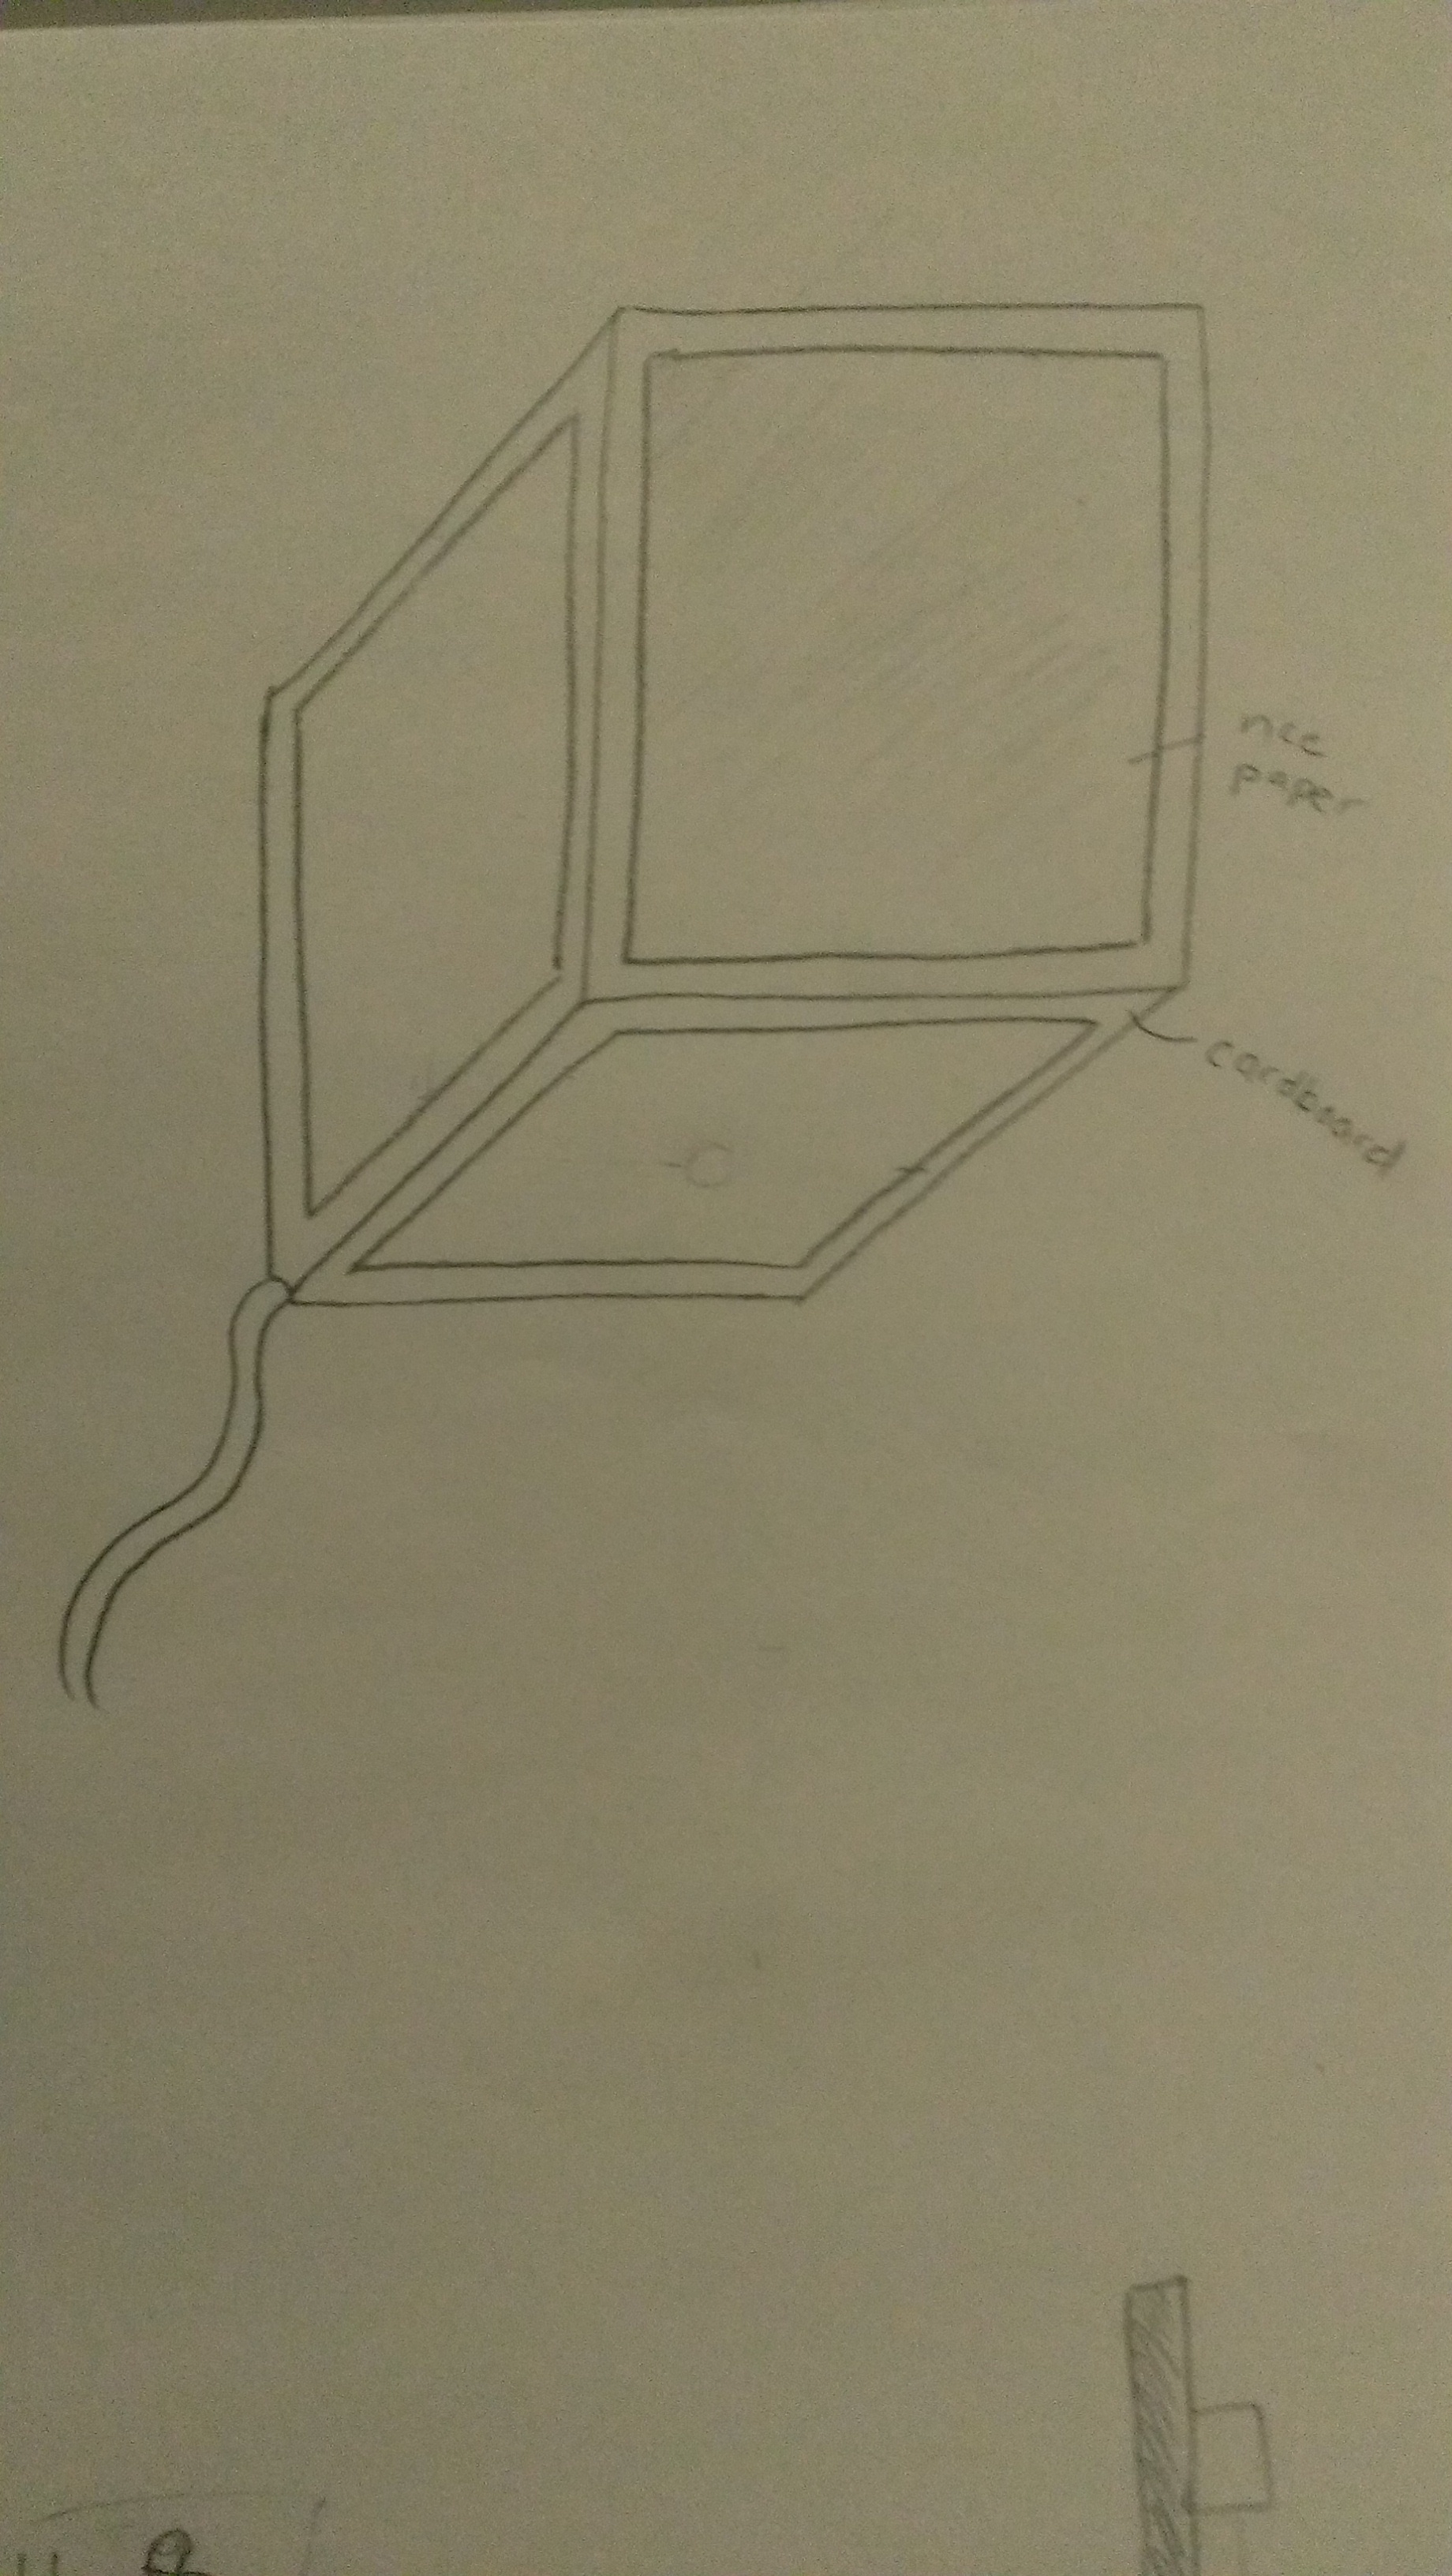 rice
paper
cardboard